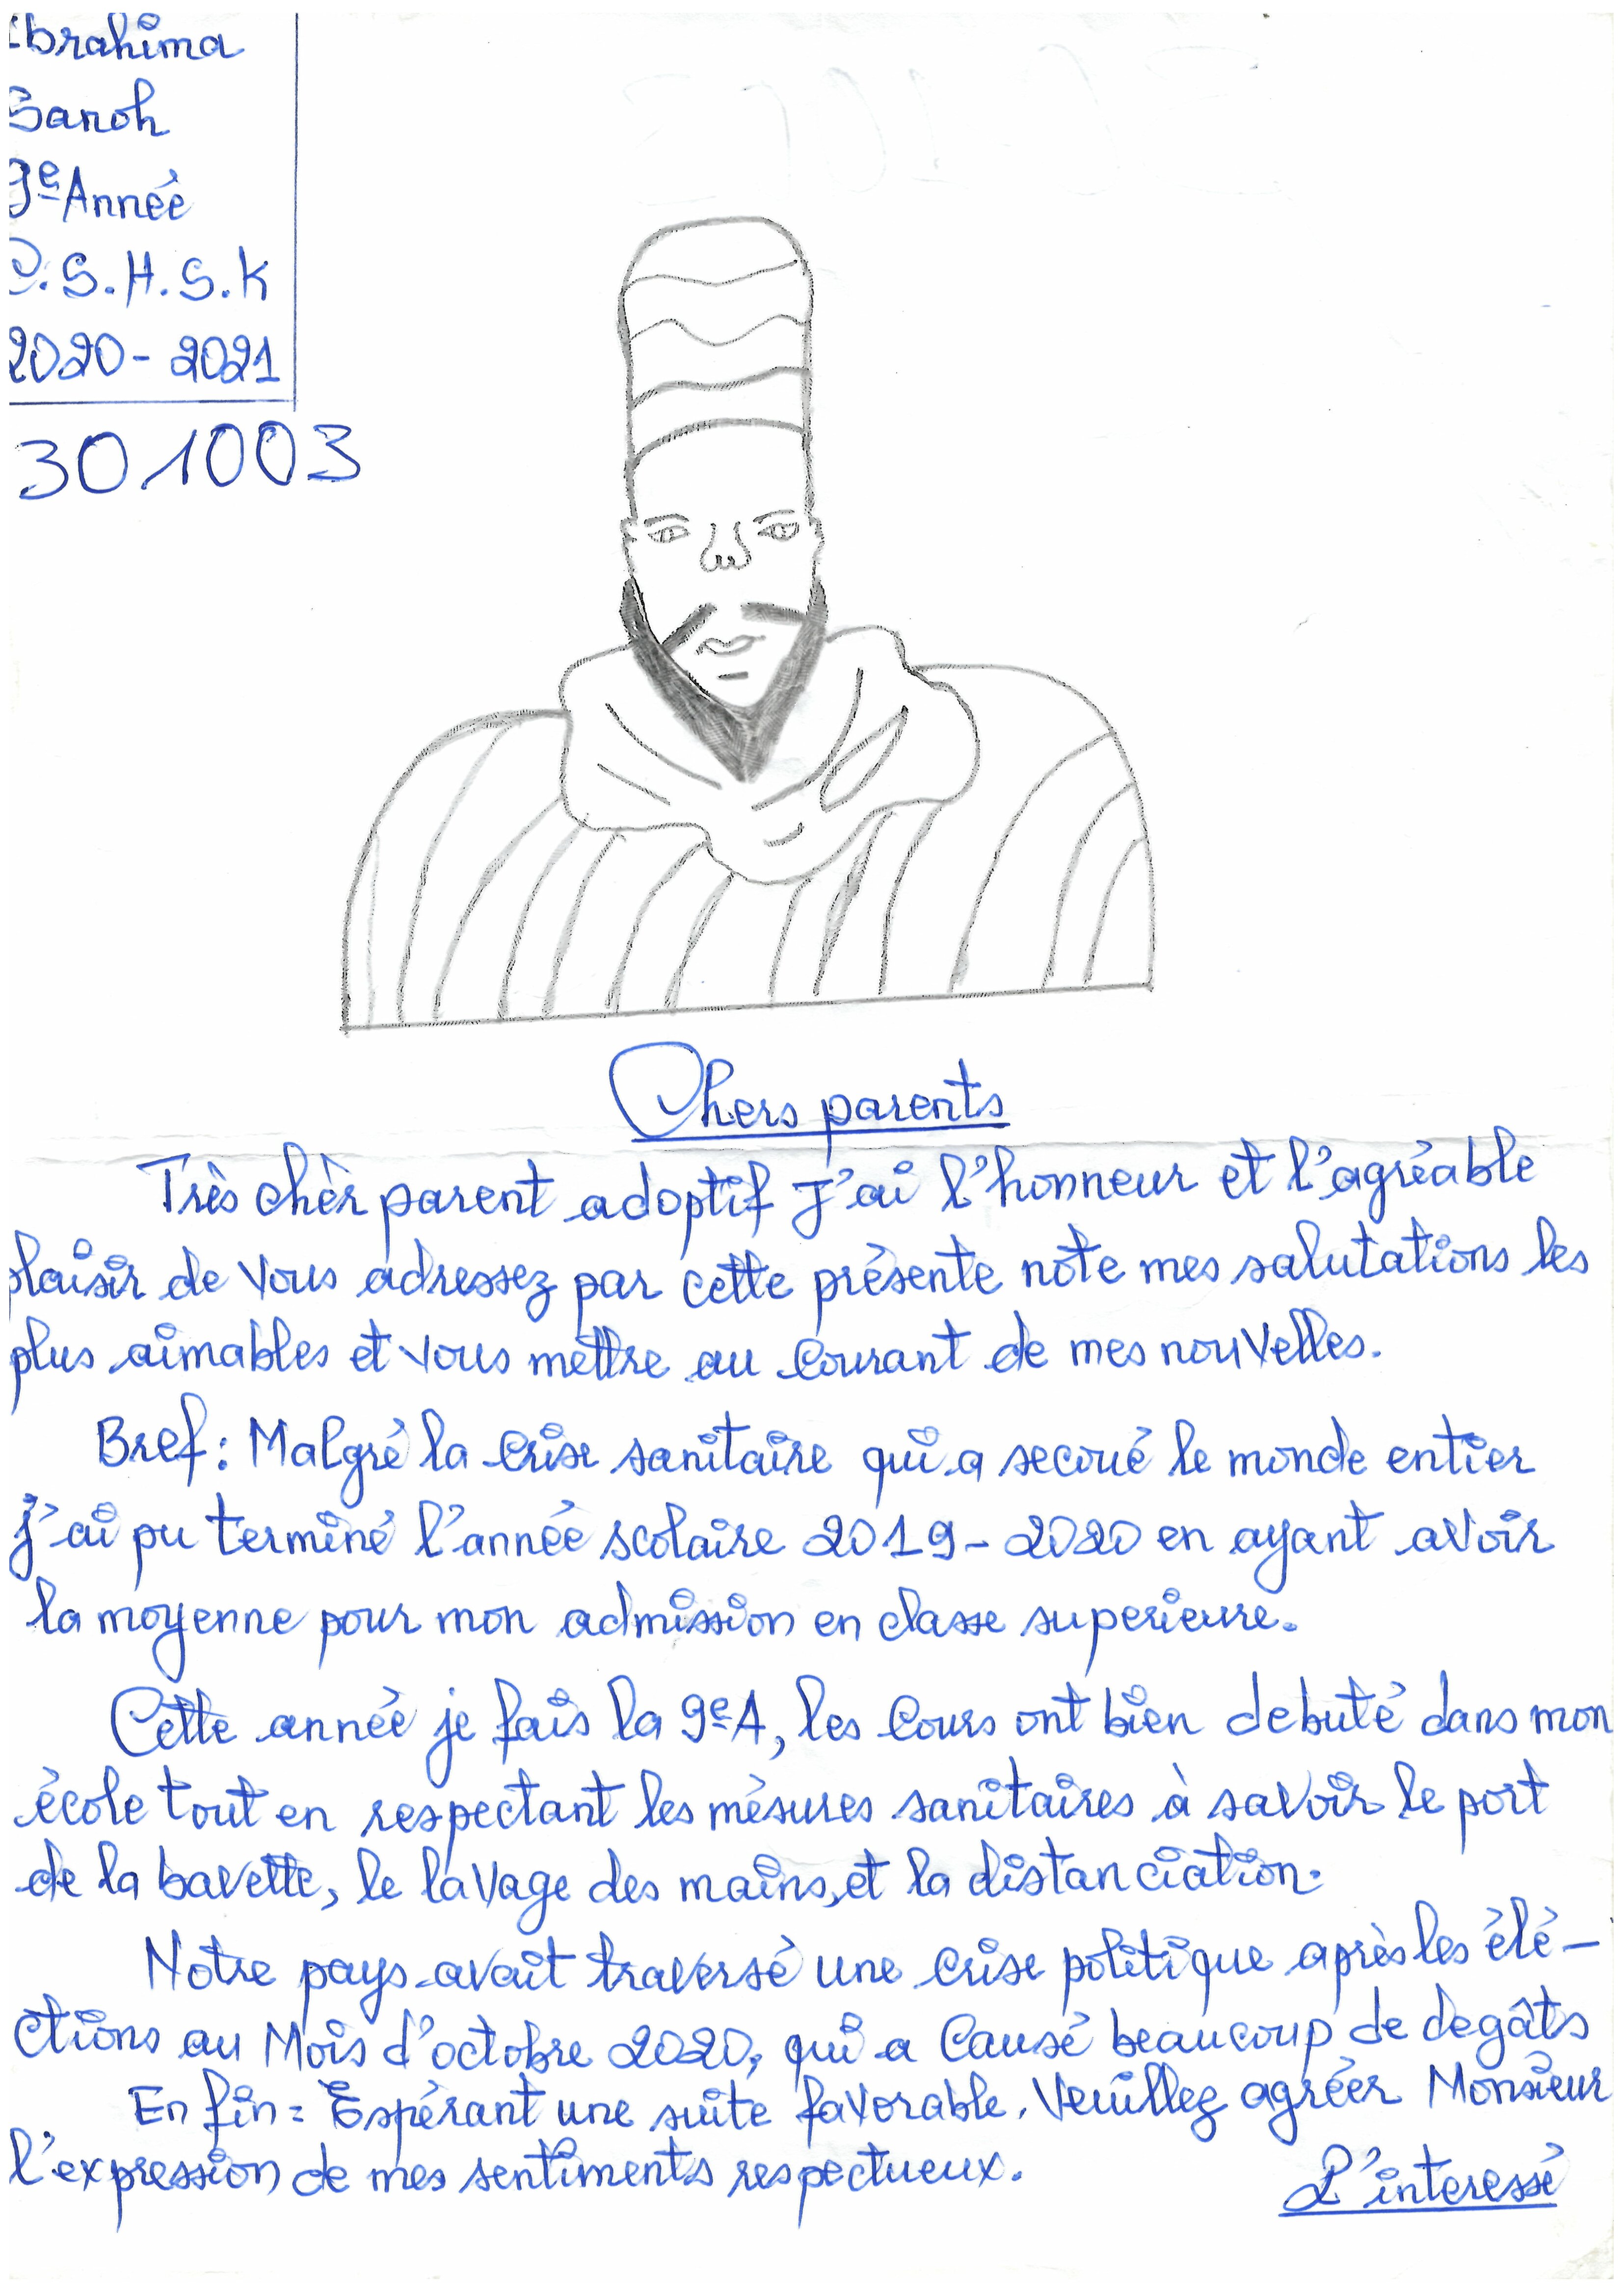 Ibrahima
Sanoh
9e Année
C.S.H.S.K
2020-2021
301003
Chers parents
Très chèr parent adoptif j'ai l'honneur et l'agréable
plaisir de vous adressez par cette présente note mes salutations les
plus aimables et vous mettre au courant de mes nouvelles.
Bref: Malgré la crise sanitaire qui a secoué le monde entier
j'ai pu terminé l'année scolaire 2019-2020 en ayant avoir
la moyenne pour mon admission en classe superieure.
Cette année je fais la 9eA, les cours ont bien debuté dans mon
école tout en respectant les mésures sanitaires à savoir le port
de la bavette, le lavage des mains, et la distanciation.
Notre pays avait traversé une crise politique après les élé-
ctions au Mois d'octobre 2020, qui a Causé beaucoup de degâts
En fin = Espérant une suite favorable. Veuillez agréer Monsieur
l'expression de mes sentiments respectueux.
L'interessé